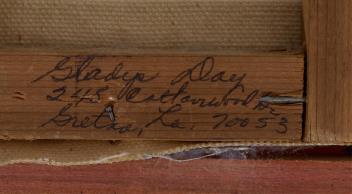 Gladys Day
248 Cottonwood Dr
Gretna, La, 70053